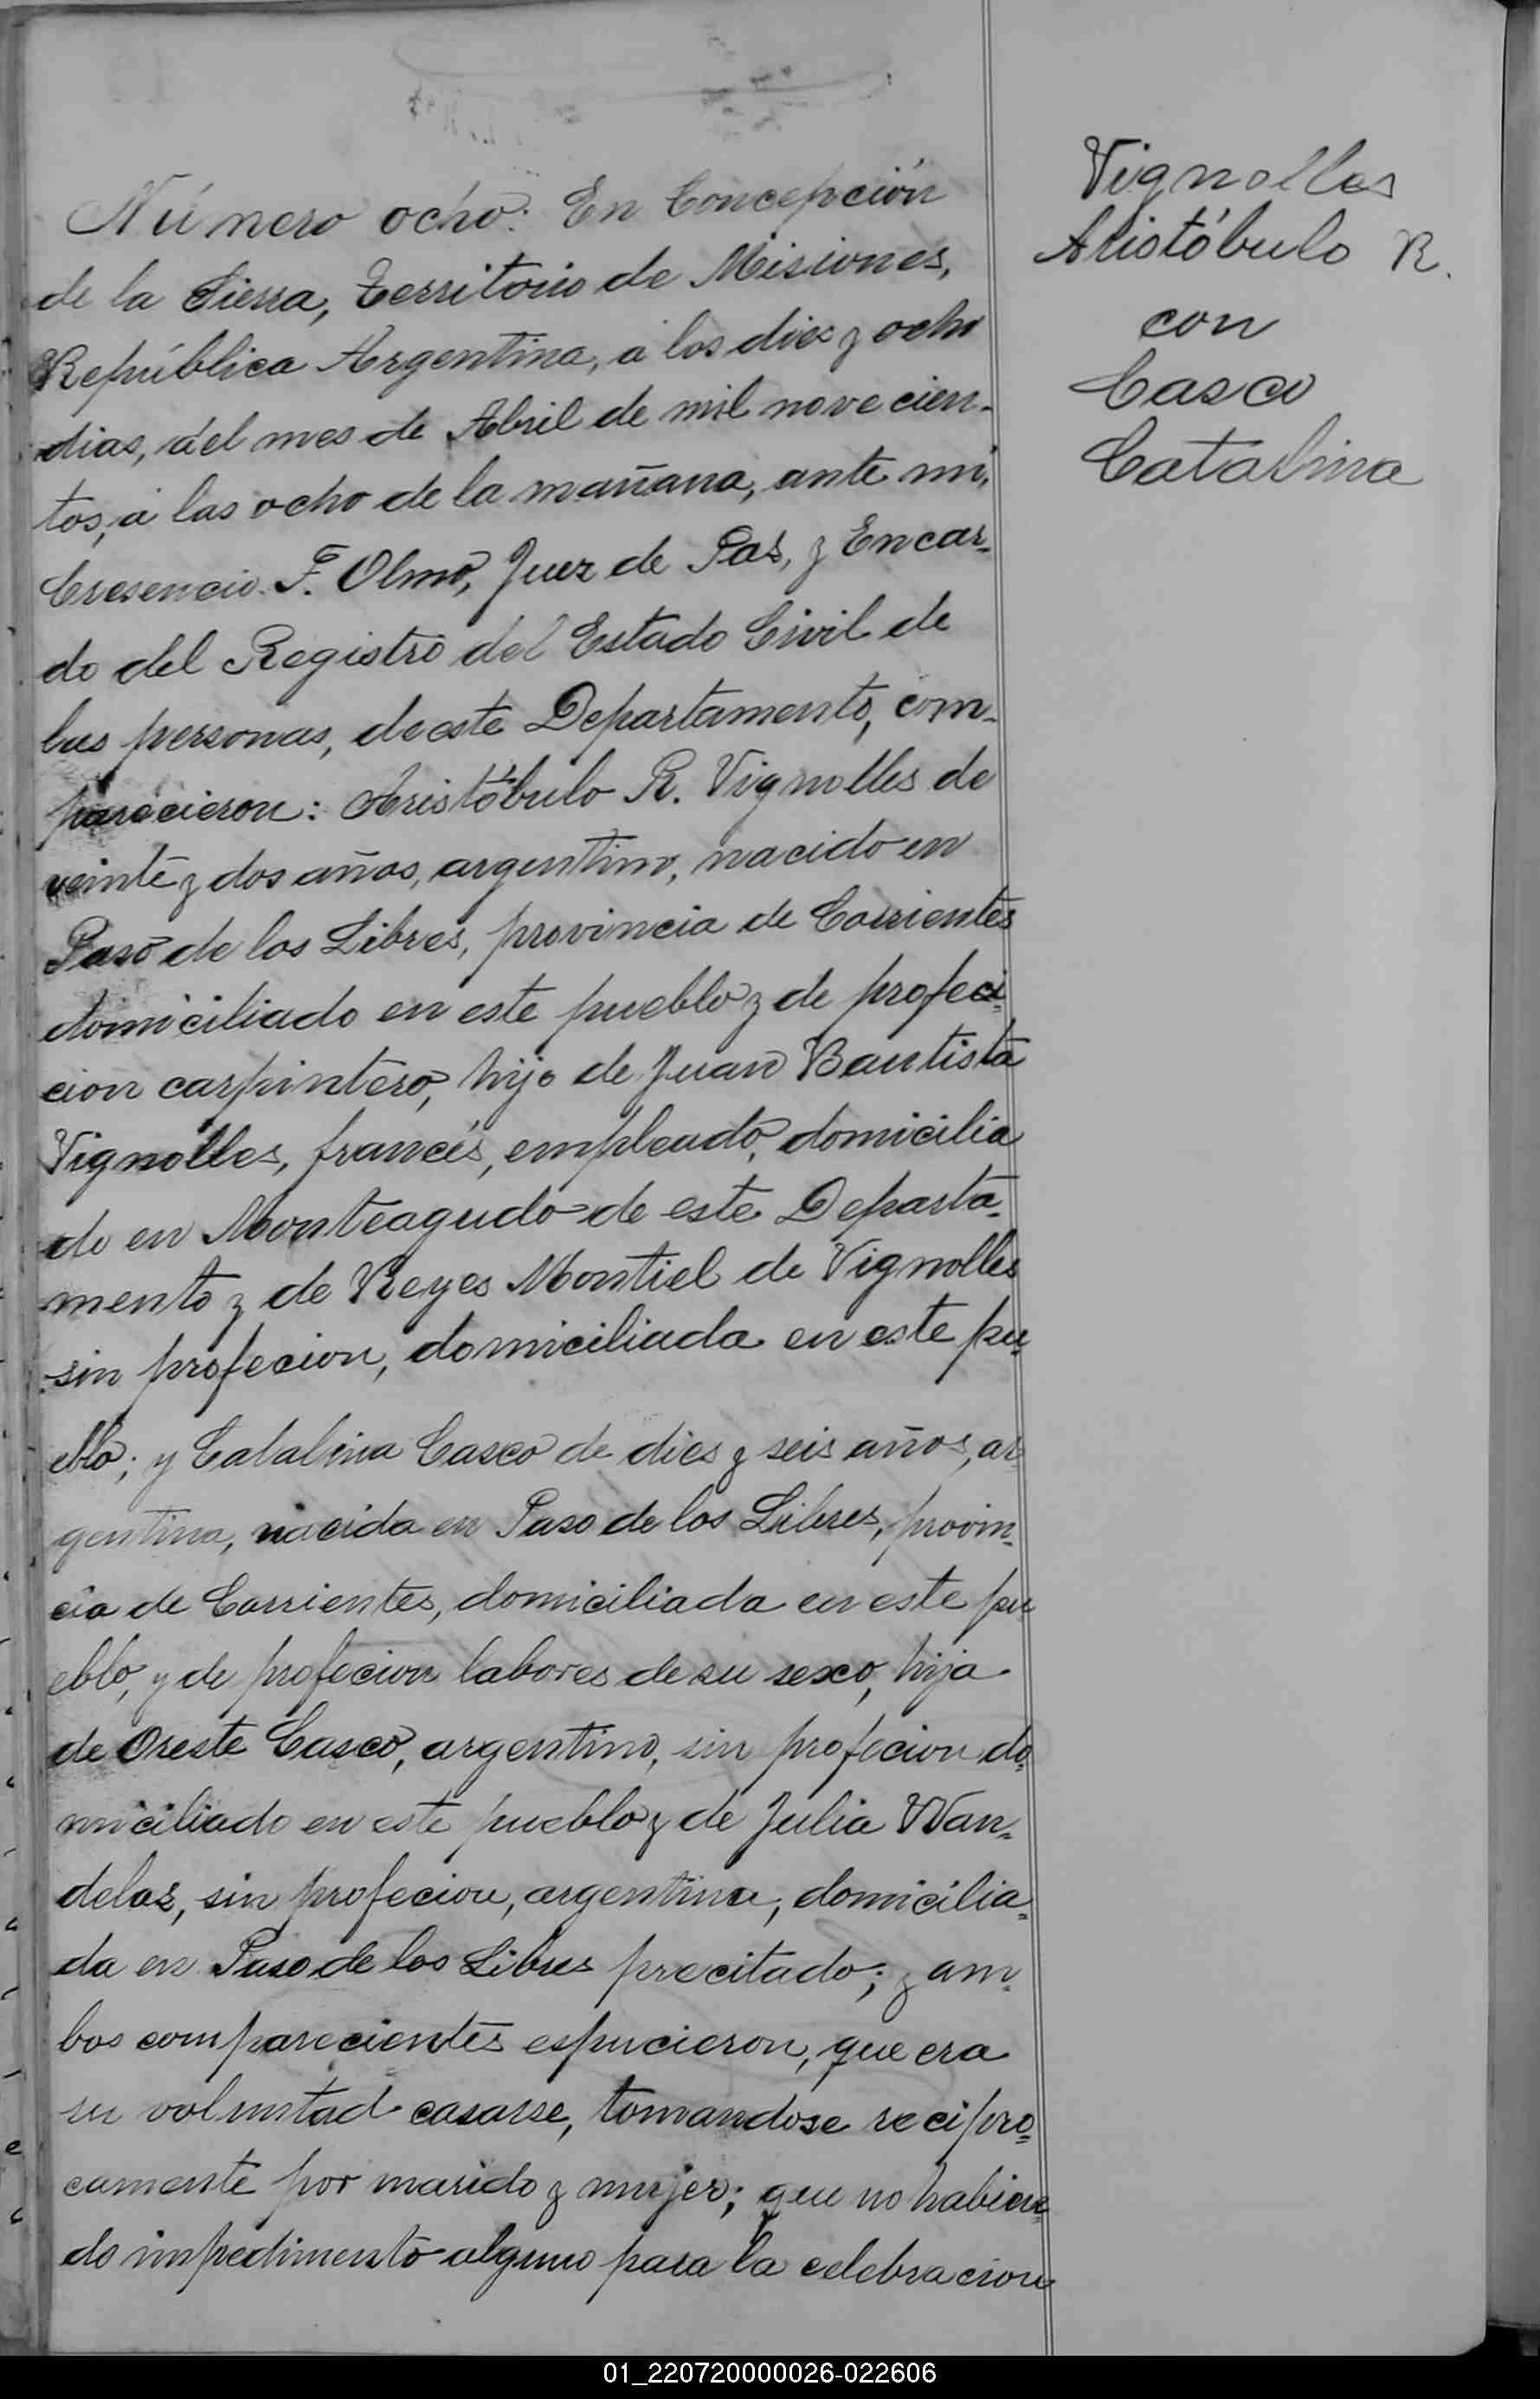 Número ocho: En Concepción
de la Sierra, Territorio de Misiones,
República Argentina, a los dies y ocho
dias, del mes de Abril de mil novecien-
tos, a las ocho de la mañana, ante mi,
Cresencio F. Olmo, Juez de Pas, y Encar-
do del Registro del Estado Civil de
las personas, de este Departamento, com-
parecieron: Aristóbulo R. Vignolles de
veinte y dos años, argentino, nacido en
Paso de los Libres, provincia de Corrientes
domiciliado en este pueblo y de profeci-
cion carpintero, hijo de Juan Bautista
Vignolles, francés, empleado, domicilia
do en Monteagudo de este Departa-
mento y de Reyes Montiel de Vignolles
sin profecion, domiciliada en este pu-
eblo; y Catalina Casco de dies y seis años, ar
gentina, nacida en Paso de los Libres, provin-
cia de Corrientes, domiciliada en este pu
eblo, y de profecion labores de su sexo, hija
de Oreste Casco, argentino, sin profecion do-
miciliado en este pueblo y de Julia Wan-
delos, sin profecion, argentina, domicilia-
da en Paso de los Libres precitado; y am-
bos comparecientes espucieron, que era
su voluntad casarse, tomandose recipro-
camente por marido y mujer; que no habien-
do impedimento alguno para la celebracion
Vignolles
Aristóbulo R.
con
Casco
Catalina
01_220720000026-022606